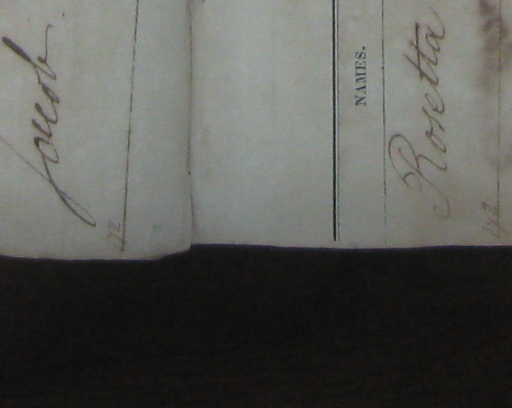 Jacob
172
NAMES.
Rosetta
173